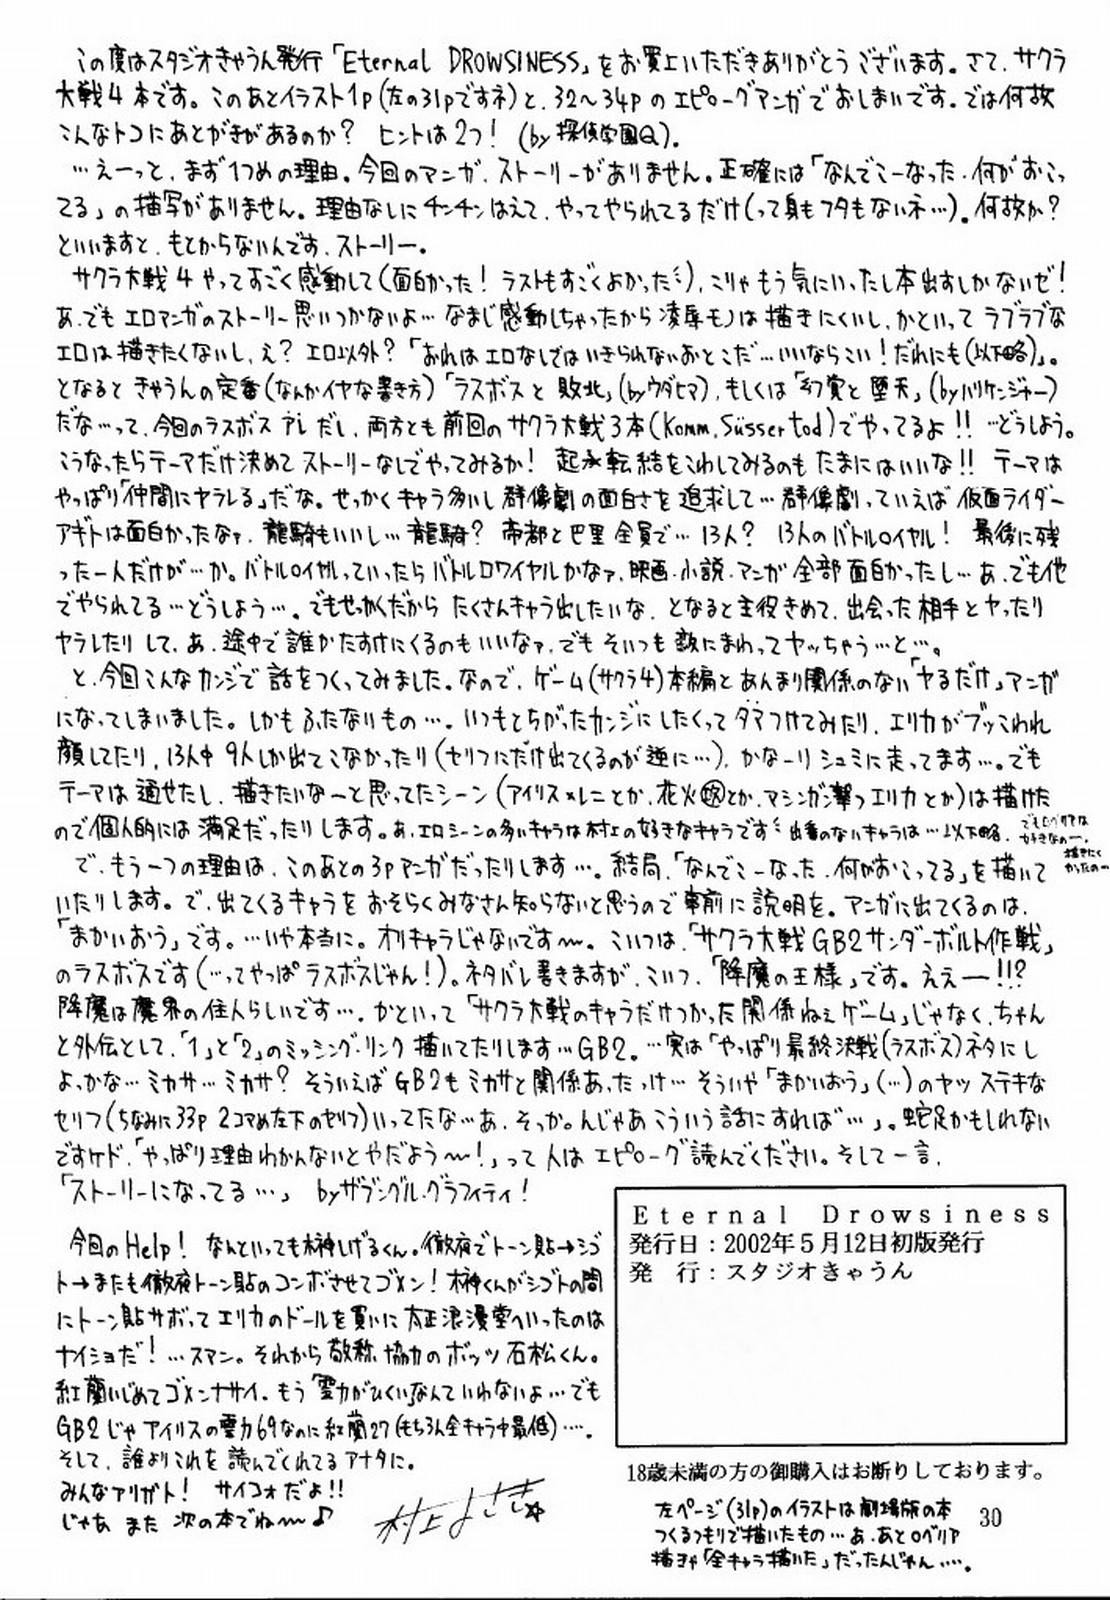 この度はスタジオきゃうん発行「Eternal DROWSINESS」をお買上いただきありがとうございます。さて、サクラ
大戦4本です。このあとイラスト1p(左の31pですネ)と、32〜34pのエピローグマンガでおしまいです。では何故
こんなトコにあとがきがあるのか? ヒントは2つ! (by 探偵学園Q)。
…えーっと、まず1つめの理由。今回のマンガ、ストーリーがありません。正確には「なんでこーなった、何がおこっ
てる」の描写がありません。理由なしにチンチンはえて、やってやられてるだけ(って身もフタもないネ…)。何故か?
といいますと、もとからないんです、ストーリー。
サクラ大戦4やってすごく感動して(面白かった! ラストもすごくよかった)、こりゃもう気にいったし本出すしかないゼ!
あ、でもエロマンガのストーリー思いつかないよ… なまじ感動しちゃったから凌辱モノは描きにくいし、かといってラブラブな
エロは描きたくないし、え? エロ以外?「おれはエロなしではいきられないおとこだ…いいならこい!だれにも(以下略)」。
となるときゃうんの定番(なんかイヤな書き方)「ラスボスと敗北」(byウダヒマ)、もしくは「幻覚と堕天」(byハリケンジャー)
だな…って、今回のラスボスアレだし、両方とも前回のサクラ大戦3本(Komm, Süsser tod)でやってるよ!! …どうしよう。
こうなったらテーマだけ決めてストーリーなしでやってみるか! 起承転結をこわしてみるのもたまにはいいな!! テーマは
やっぱり「仲間にヤラレる」だな。せっかくキャラ多いし群像劇の面白さを追求して… 群像劇っていえば仮面ライダー
アギトは面白かったなァ、龍騎もいいし… 龍騎? 帝都と巴里全員で… 13人? 13人のバトルロイヤル! 最後に残
った一人だけが…か。バトルロイヤルっていったらバトルロワイヤルかなァ、映画・小説・マンガ全部面白かったし… あ、でも他
でやられてる…どうしよう…。でもせっかくだからたくさんキャラ出したいな、となると主役きめて、出会った相手とヤったり
ヤラしたりして、あ、途中で誰かたすけにくるのもいいなァ、でもそいつも敵にまわってヤッちゃう…と…。
と、今回こんなカンジで話をつくってみました。なので、ゲーム(サクラ4)本編とあんまり関係のない「ヤるだけ」マンガ
になってしまいました。しかもふたなりもの…。いつもとちがったカンジにしたくってタマつけてみたり、エリカがブッこわれ
顔してたり、13人中9人しか出てこなかったり(セリフにだけ出てくるのが逆に…)、かなーりシュミに走ってます…。でも
テーマは通せたし、描きたいなーと思ってたシーン(アイリス×レニとか、花火㊙とか、マシンガン撃つエリカとか)は描けた
ので個人的には満足だったりします。あ、エロシーンの多いキャラは村上の好きなキャラです 出番のないキャラは…以下略。
でもロベリアは
好きなのー。
描きたく
かったのー
で、もう一つの理由は、このあとの3pマンガだったりします…。結局、「なんでこーなった、何がおこってる」を描いて
いたりします。で、出てくるキャラをおそらくみなさん知らないと思うので事前に説明を。マンガに出てくるのは、
「まかいおう」です。…いや本当に。オリキャラじゃないです〜。こいつは、「サクラ大戦GB2サンダーボルト作戦」
のラスボスです(…ってやっぱラスボスじゃん!)。ネタバレ書きますが、こいつ、「降魔の王様」です。ええー!!?
降魔は魔界の住人らしいです…。かといって「サクラ大戦のキャラだけつかった関係ねぇゲーム」じゃなく、ちゃん
と外伝として、「1」と「2」のミッシング・リンク描いてたりします…GB2。…実は「やっぱり最終決戦(ラスボス)ネタにし
よっかな… ミカサ… ミカサ? そういえばGB2もミカサと関係あったっけ… そういや「まかいおう」(…)のヤツステキな
セリフ(ちなみに33p2コマめ左下のセリフ)いってたな…あ、そっか。んじゃあこういう話にすれば…」。蛇足かもしれない
ですケド、「やっぱり理由わかんないとやだよう〜!」って人はエピローグ読んでください。そして一言、
「ストーリーになってる…」 byザブングル・グラフィティ!
今回のHelp! なんといっても榊しげるくん。徹夜でトーン貼→シゴ
ト→またも徹夜トーン貼のコンボさせてゴメン! 榊くんがシゴトの間
にトーン貼サボってエリカのドールを買いに太正浪漫堂へいったのは
ナイショだ! …スマン。それから敬称協力のボッツ石松くん。
紅蘭いじめてゴメンナサイ。もう「霊力がひくい」なんていわないよ…でも
GB2じゃアイリスの霊力69なのに紅蘭27(もちろん全キャラ中最低)…。
そして、誰よりこれを読んでくれてるアナタに。
みんなアリガト! サイコォだよ!!
じゃあまた次の本でね〜♪
村上
Eternal Drowsiness
発行日:2002年5月12日初版発行
発 行:スタジオきゃうん
18歳未満の方の御購入はお断りしております。
左ページ(31p)のイラストは劇場版の本
つくるつもりで描いたもの…あ、あとロベリア
描きゃ「全キャラ描いた」だったんじゃん…。
30